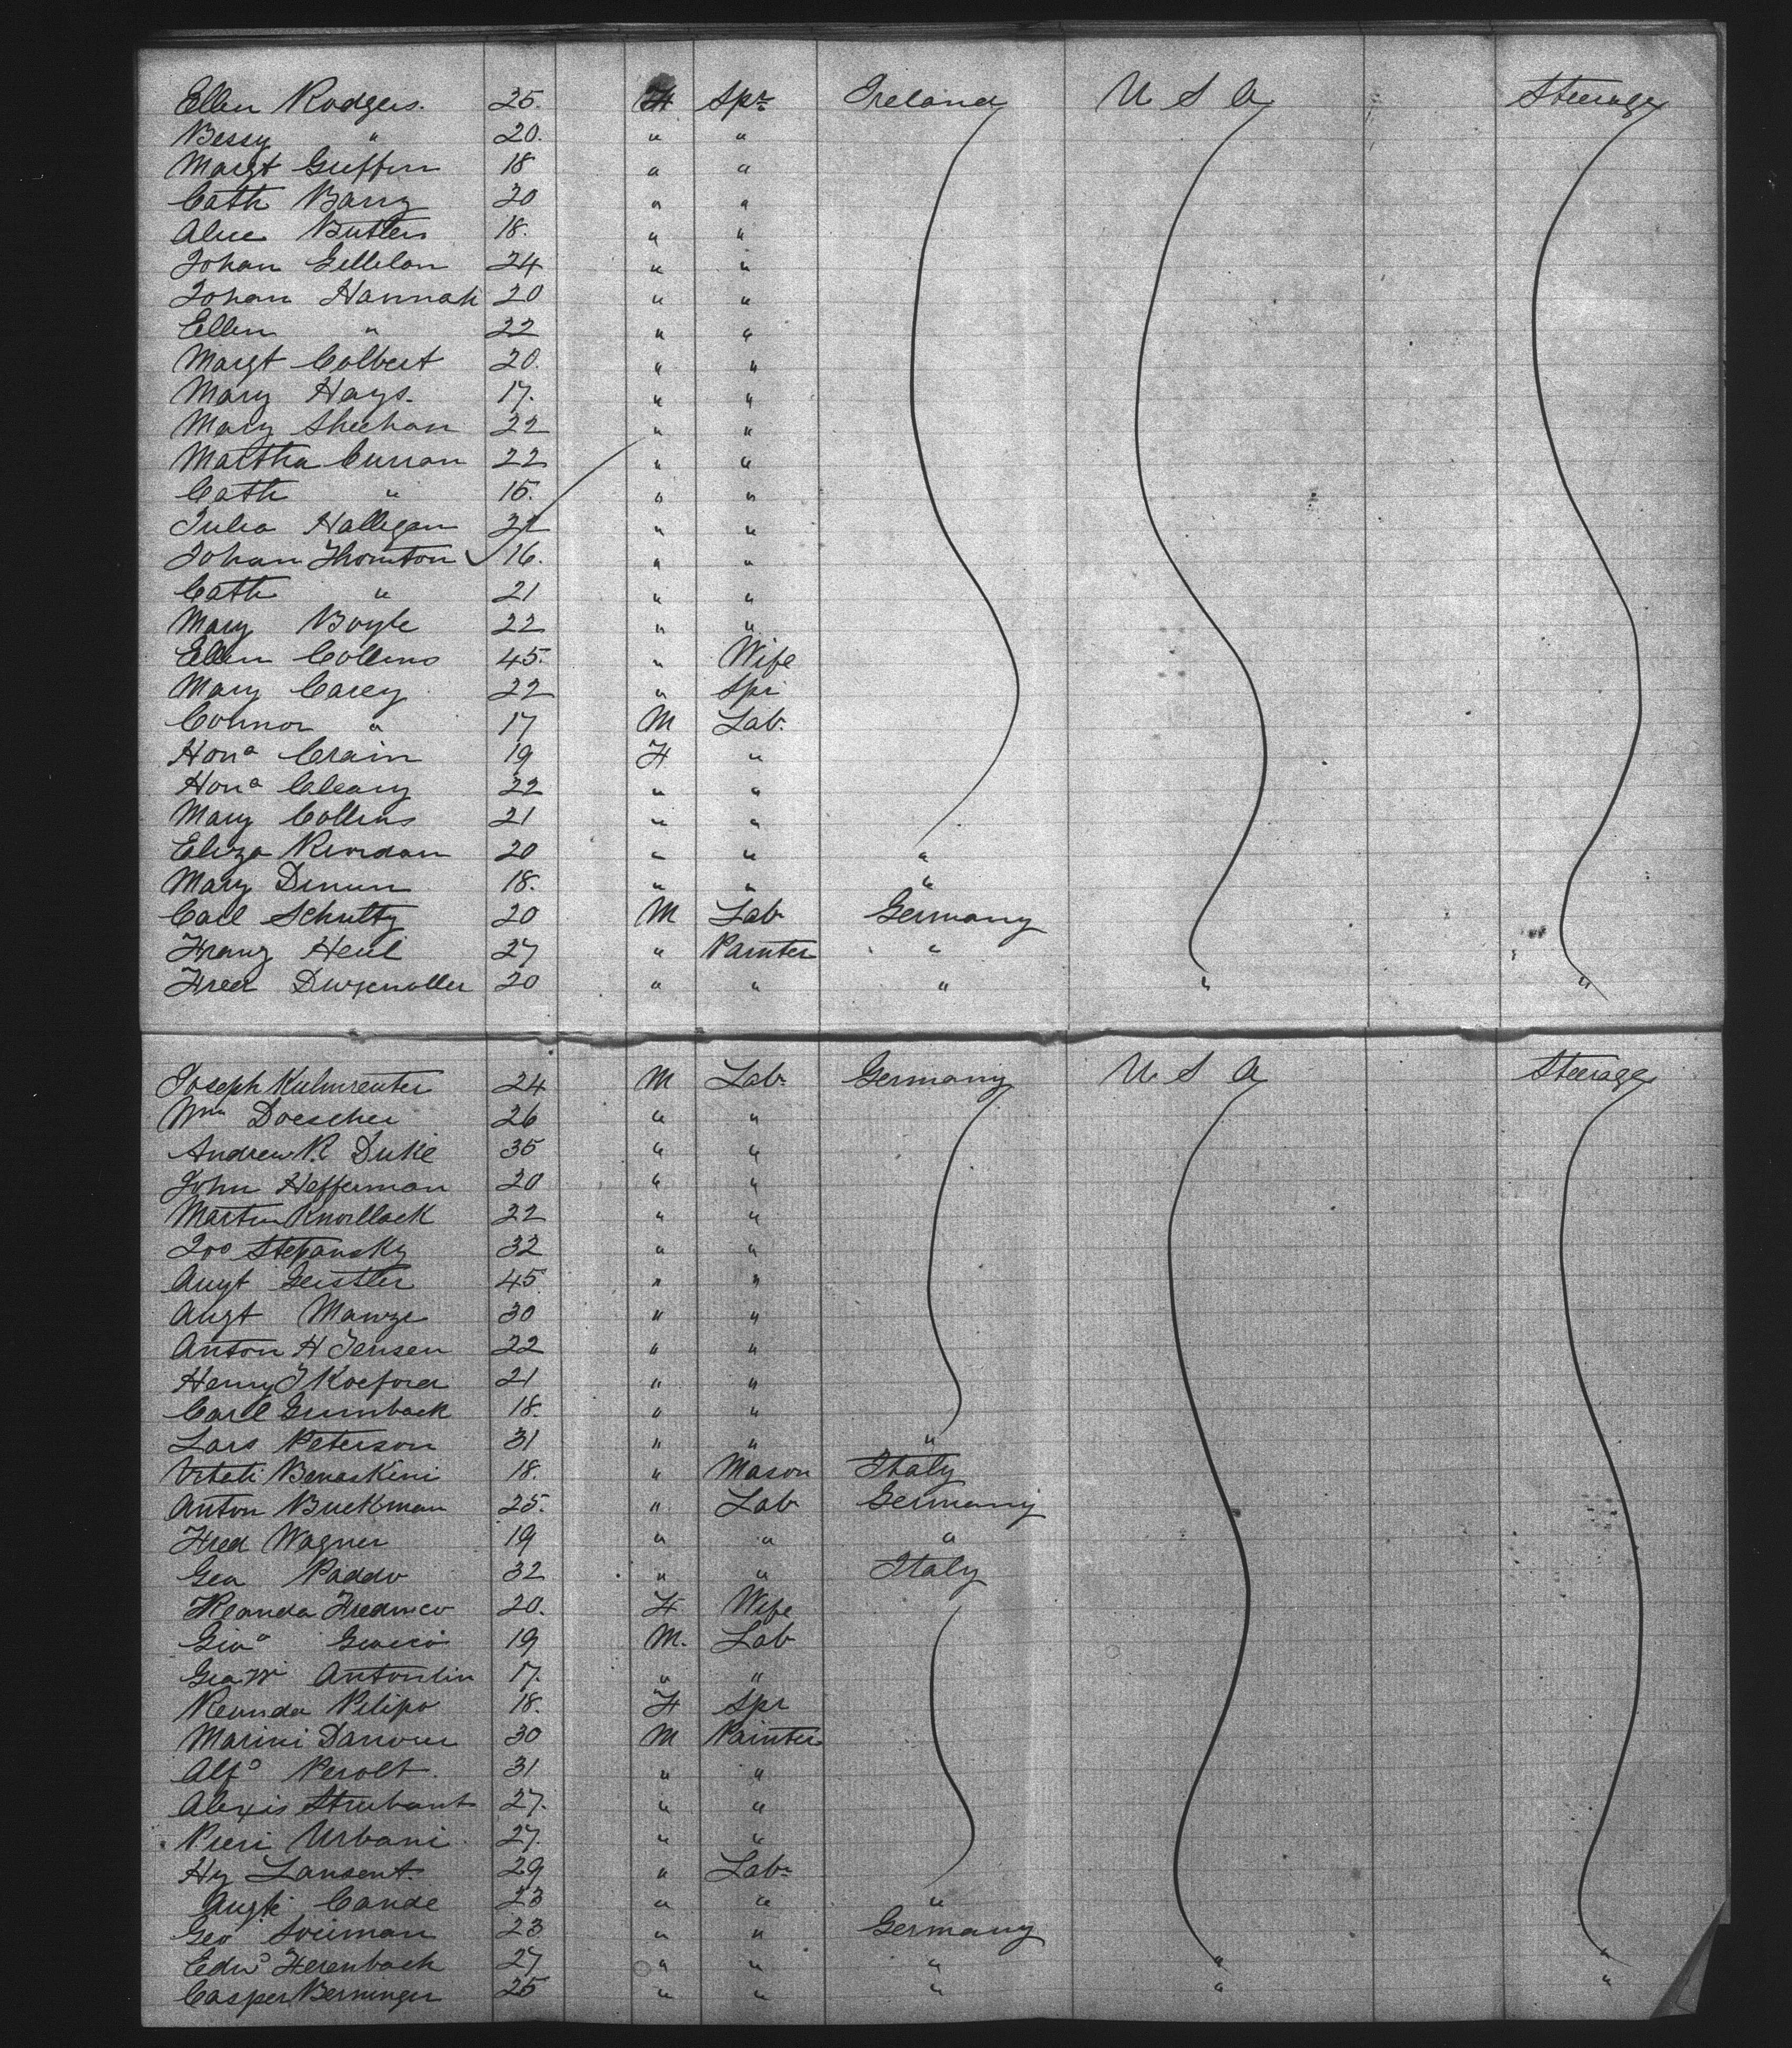 Ellen Rodgers. 25. F Spr Ireland U S A Steerage
Bessy " 20. " "
Margt Griffin 18 " "
Cath Barry 20 " "
Alice Butlers 18. " "
Johan Gillilan 24 " "
Johan Hannah 20 " "
Ellen " 22 " "
Margt Colbert 20. " "
Mary Hays. 17. " "
Mary Sheehan 22 " "
Martha Curran 22 " "
Cath " 15. " "
Julia Halligan 22 " "
Johan Thornton 16. " "
Cath " 21 " "
Mary Boyle 22 " "
Ellen Collins 45. " Wife
Mary Carey 22 " Spr
Connor " 17 M Lab.
Hona Crain 19 F "
Hona Cleary 22 " "
Mary Collins 21 " "
Eliza Riordan 20 " " "
Mary 18. " " "
Carl Schultz 20 M Lab Germany
Franz Heul 27 " Painter "
Fred 20 " " " " "
Joseph 24 M Lab. Germany U S A Steerage
Wm Doescher 26 " "
Andrew R. Duke 35 " "
John Hefferman 20 " "
Martin Knorllack 22 " "
Stepansky 32 " "
Augt Geistler 45 " "
Augt Manze 30 " "
Anton H Jensen 22 " "
Henry J Koefoed 21 " "
Carl Grumback 18. " "
Lars Peterson 31 " " "
Viteli Benaskini 18. " Mason Italy
Anton Buckman 25. " Lab Germany
Fred Wagner 19 " " "
Gea Paddo 32 " " Italy
Fredrico 20. F Wife
Gioa 19 M. Lab
Antonlin 17. " "
Reunda Pilipo 18. F Spr
Marini 30 M Painter
Alfo Perolt. 31 " "
Alexis Strubant 27. " "
Pieri Urbani. 27. " "
Hy Lansent. 29 " Lab.
Augte Cande 23 " " "
Geo Soeiman 23 " " Germany
Edwd Herenback 27 " " " " "
Casper Berninger 25 " " " " "